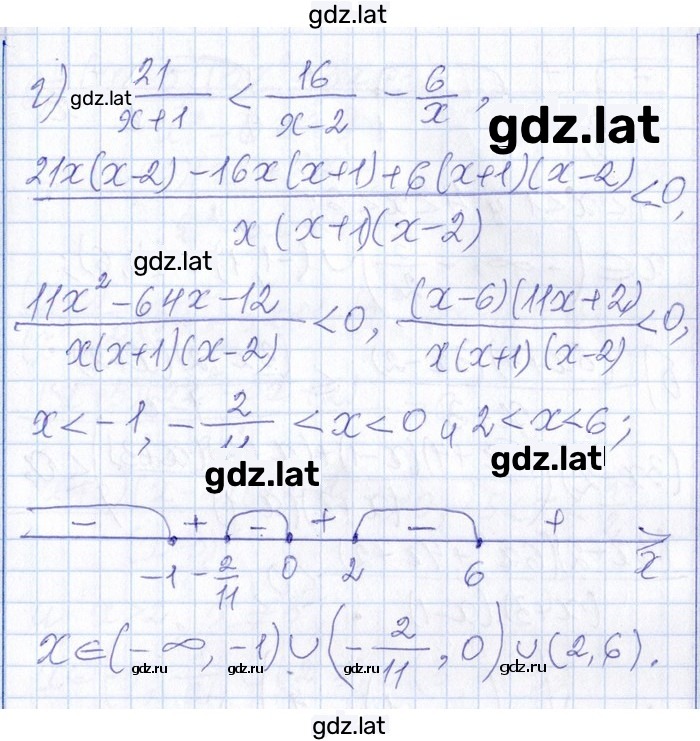 gdz.lat
г) 21/(x+1) < 16/(x-2) - 6/x,
gdz.lat
gdz.lat
(21x(x-2) - 16x(x+1) + 6(x+1)(x-2))/(x(x+1)(x-2)) < 0,
gdz.lat
(11x² - 64x - 12)/(x(x+1)(x-2)) < 0, ((x-6)(11x+2))/(x(x+1)(x-2)) < 0,
x < -1, -2/11 < x < 0 и 2 < x < 6;
gdz.lat
gdz.lat
- + - + - +
-1 -2/11 0 2 6 x
x ∈ (-∞, -1) ∪ (-2/11, 0) ∪ (2, 6).
gdz.ru gdz.ru gdz.ru gdz.ru
gdz.lat